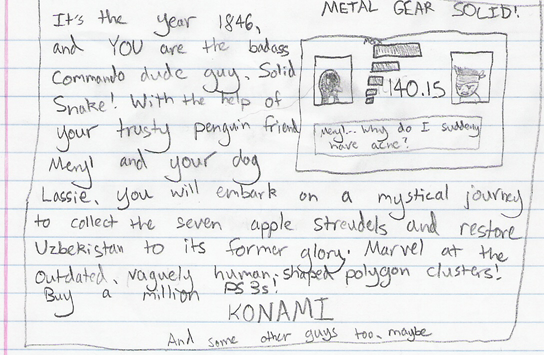 METAL GEAR SOLID!
It's the year 1846,
and YOU are the badass
Commando dude guy, Solid
Snake! With the help of
your trusty penguin friend
Meryl and your dog
140.15
Meryl... why do I suddenly
have acne?
Lassie, you will embark on a mystical journey
to collect the seven apple streudels and restore
Uzbekistan to its former glory. Marvel at the
outdated, vaguely human-shaped polygon clusters!
Buy a million PS3s!
KONAMI
And some other guys too, maybe